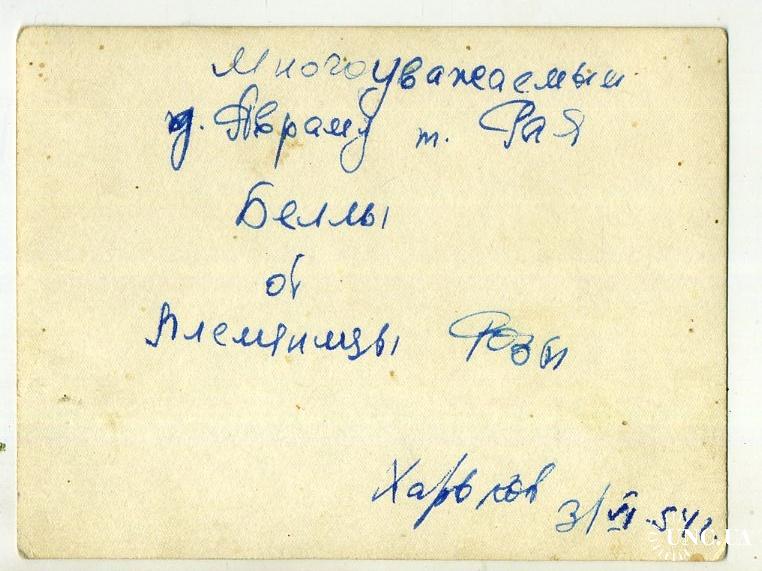 Многоуважаемым
д. Авраму т. Рая
Беллы
от
Племянницы Розы
Харьков 3/VI-54г.
UNC.UA